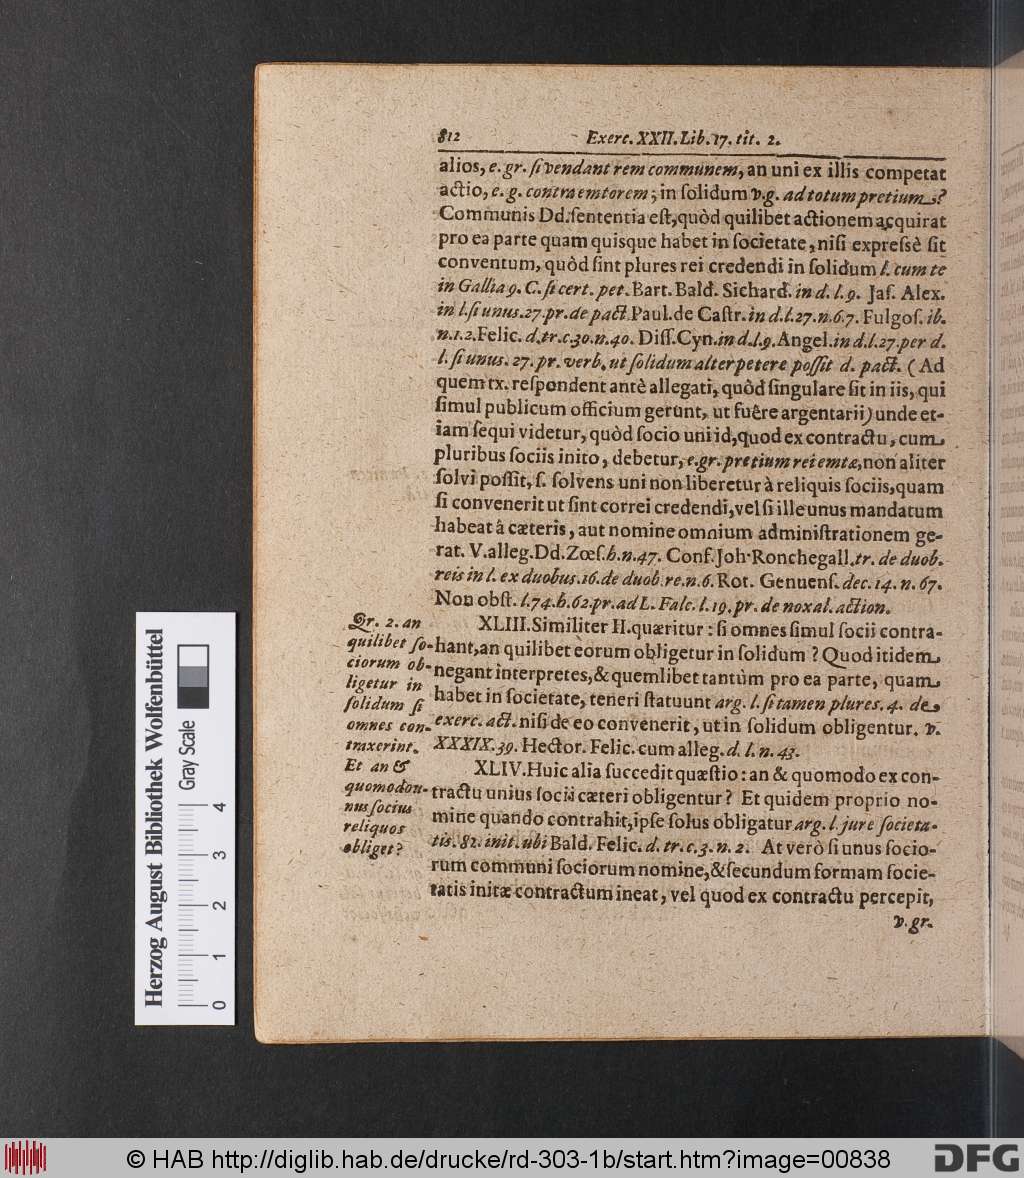 812 Exerc. XXII. Lib. 17. tit. 2.
alios, e. gr. ſi vendant rem communem, an uni ex illis competat
actio, e. g. contra emtorem; in ſolidum v. g. ad totum pretium?
Communis Dd. ſententia eſt, quòd quilibet actionem acquirat
pro ea parte quam quisque habet in ſocietate, niſi expreſsè ſit
conventum, quòd ſint plures rei credendi in ſolidum l. cum te
in Gallia 9. C. ſi cert. pet. Bart. Bald. Sichard. in d. l. 9. Jaſ. Alex.
in l. ſi unus. 27. pr. de pact. Paul. de Caſtr. in d. l. 27. n. 6. 7. Fulgoſ. ib.
n. 1. 2. Felic. d. tr. c. 30. n. 40. Diſſ. Cyn. in d. l. 9. Angel. in d. l. 27. per d.
l. ſi unus. 27. pr. verb. ut ſolidum alter petere poſſit d. pact. (Ad
quem tx. reſpondent antè allegati, quòd ſingulare ſit in iis, qui
ſimul publicum officium gerunt, ut fuêre argentarii) unde et-
iam ſequi videtur, quòd ſocio uni id, quod ex contractu, cum
pluribus ſociis inito, debetur, e. gr. pretium rei emtæ, non aliter
ſolvi poſſit, ſ. ſolvens uni non liberetur à reliquis ſociis, quam
ſi convenerit ut ſint correi credendi, vel ſi ille unus mandatum
habeat â cæteris, aut nomine omnium adminiſtrationem ge-
rat. V. alleg. Dd. Zœſ. h. n. 47. Conf. Joh. Ronchegall. tr. de duob.
reis in l. ex duobus. 16. de duob. re. n. 6. Rot. Genuenſ. dec. 14. n. 67.
Non obſt. l. 74. h. 62. pr. ad L. Falc. l. 19. pr. de noxal. action.
XLIII. Similiter II. quæritur: ſi omnes ſimul ſocii contra-
hant, an quilibet eorum obligetur in ſolidum? Quod itidem
negant interpretes, & quemlibet tantùm pro ea parte, quam
habet in ſocietate, teneri ſtatuunt arg. l. ſi tamen plures. 4. de
exerc. act. niſi de eo convenerit, ut in ſolidum obligentur. v.
XXXIX. 39. Hector. Felic. cum alleg. d. l. n. 43.
Qr. 2. an
quilibet ſo-
ciorum ob-
ligetur in
ſolidum ſi
omnes con-
traxerint.
XLIV. Huic alia ſuccedit quæſtio: an & quomodo ex con-
tractu unius ſocii cæteri obligentur? Et quidem proprio no-
mine quando contrahit, ipſe ſolus obligatur arg. l. jure ſocieta-
tis. 82. init. ubi Bald. Felic. d. tr. c. 3. n. 2. At verò ſi unus ſocio-
rum communi ſociorum nomine, & ſecundum formam ſocie-
tatis initæ contractum ineat, vel quod ex contractu percepit,
Et an &
quomodo u-
nus ſocius
reliquos
obliget?
v. gr.
Herzog August Bibliothek Wolfenbüttel
Gray Scale
0 1 2 3 4
© HAB http://diglib.hab.de/drucke/rd-303-1b/start.htm?image=00838
DFG